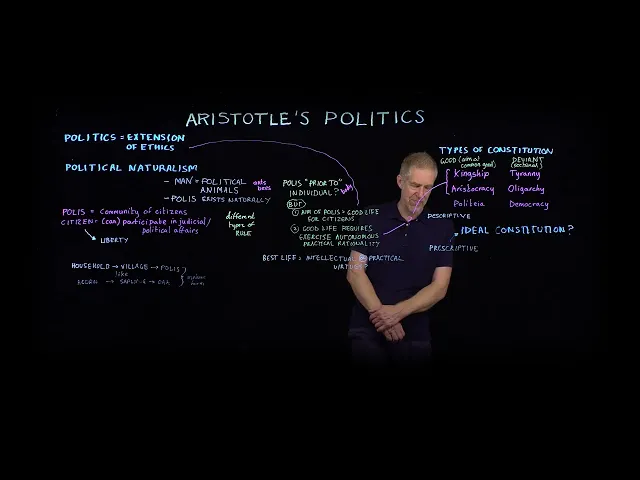 ARISTOTLE'S POLITICS
POLITICS = EXTENSION
OF ETHICS
POLITICAL NATURALISM
- MAN = POLITICAL
ANIMALS
ants
bees
- POLIS EXISTS NATURALLY
POLIS = community of citizens
CITIZEN = (can) participate in judicial/
political affairs
→ LIBERTY
different
types of
RULE
HOUSEHOLD → VILLAGE → POLIS
like
ACORN → SAPLING → OAK
POLIS "PRIOR TO"
INDIVIDUAL?
body
BUT
① AIM OF POLIS = GOOD LIFE
FOR CITIZENS
② GOOD LIFE REQUIRES
EXERCISE AUTONOMOUS
PRACTICAL RATIONALITY
BEST LIFE = INTELLECTUAL PRACTICAL
VIRTUE?
TYPES OF CONSTITUTION
GOOD (aim at
common good)
DEVIANT
(sectional)
Kingship Tyranny
Aristocracy Oligarchy
Politeia Democracy
DESCRIPTIVE
IDEAL CONSTITUTION?
PRESCRIPTIVE